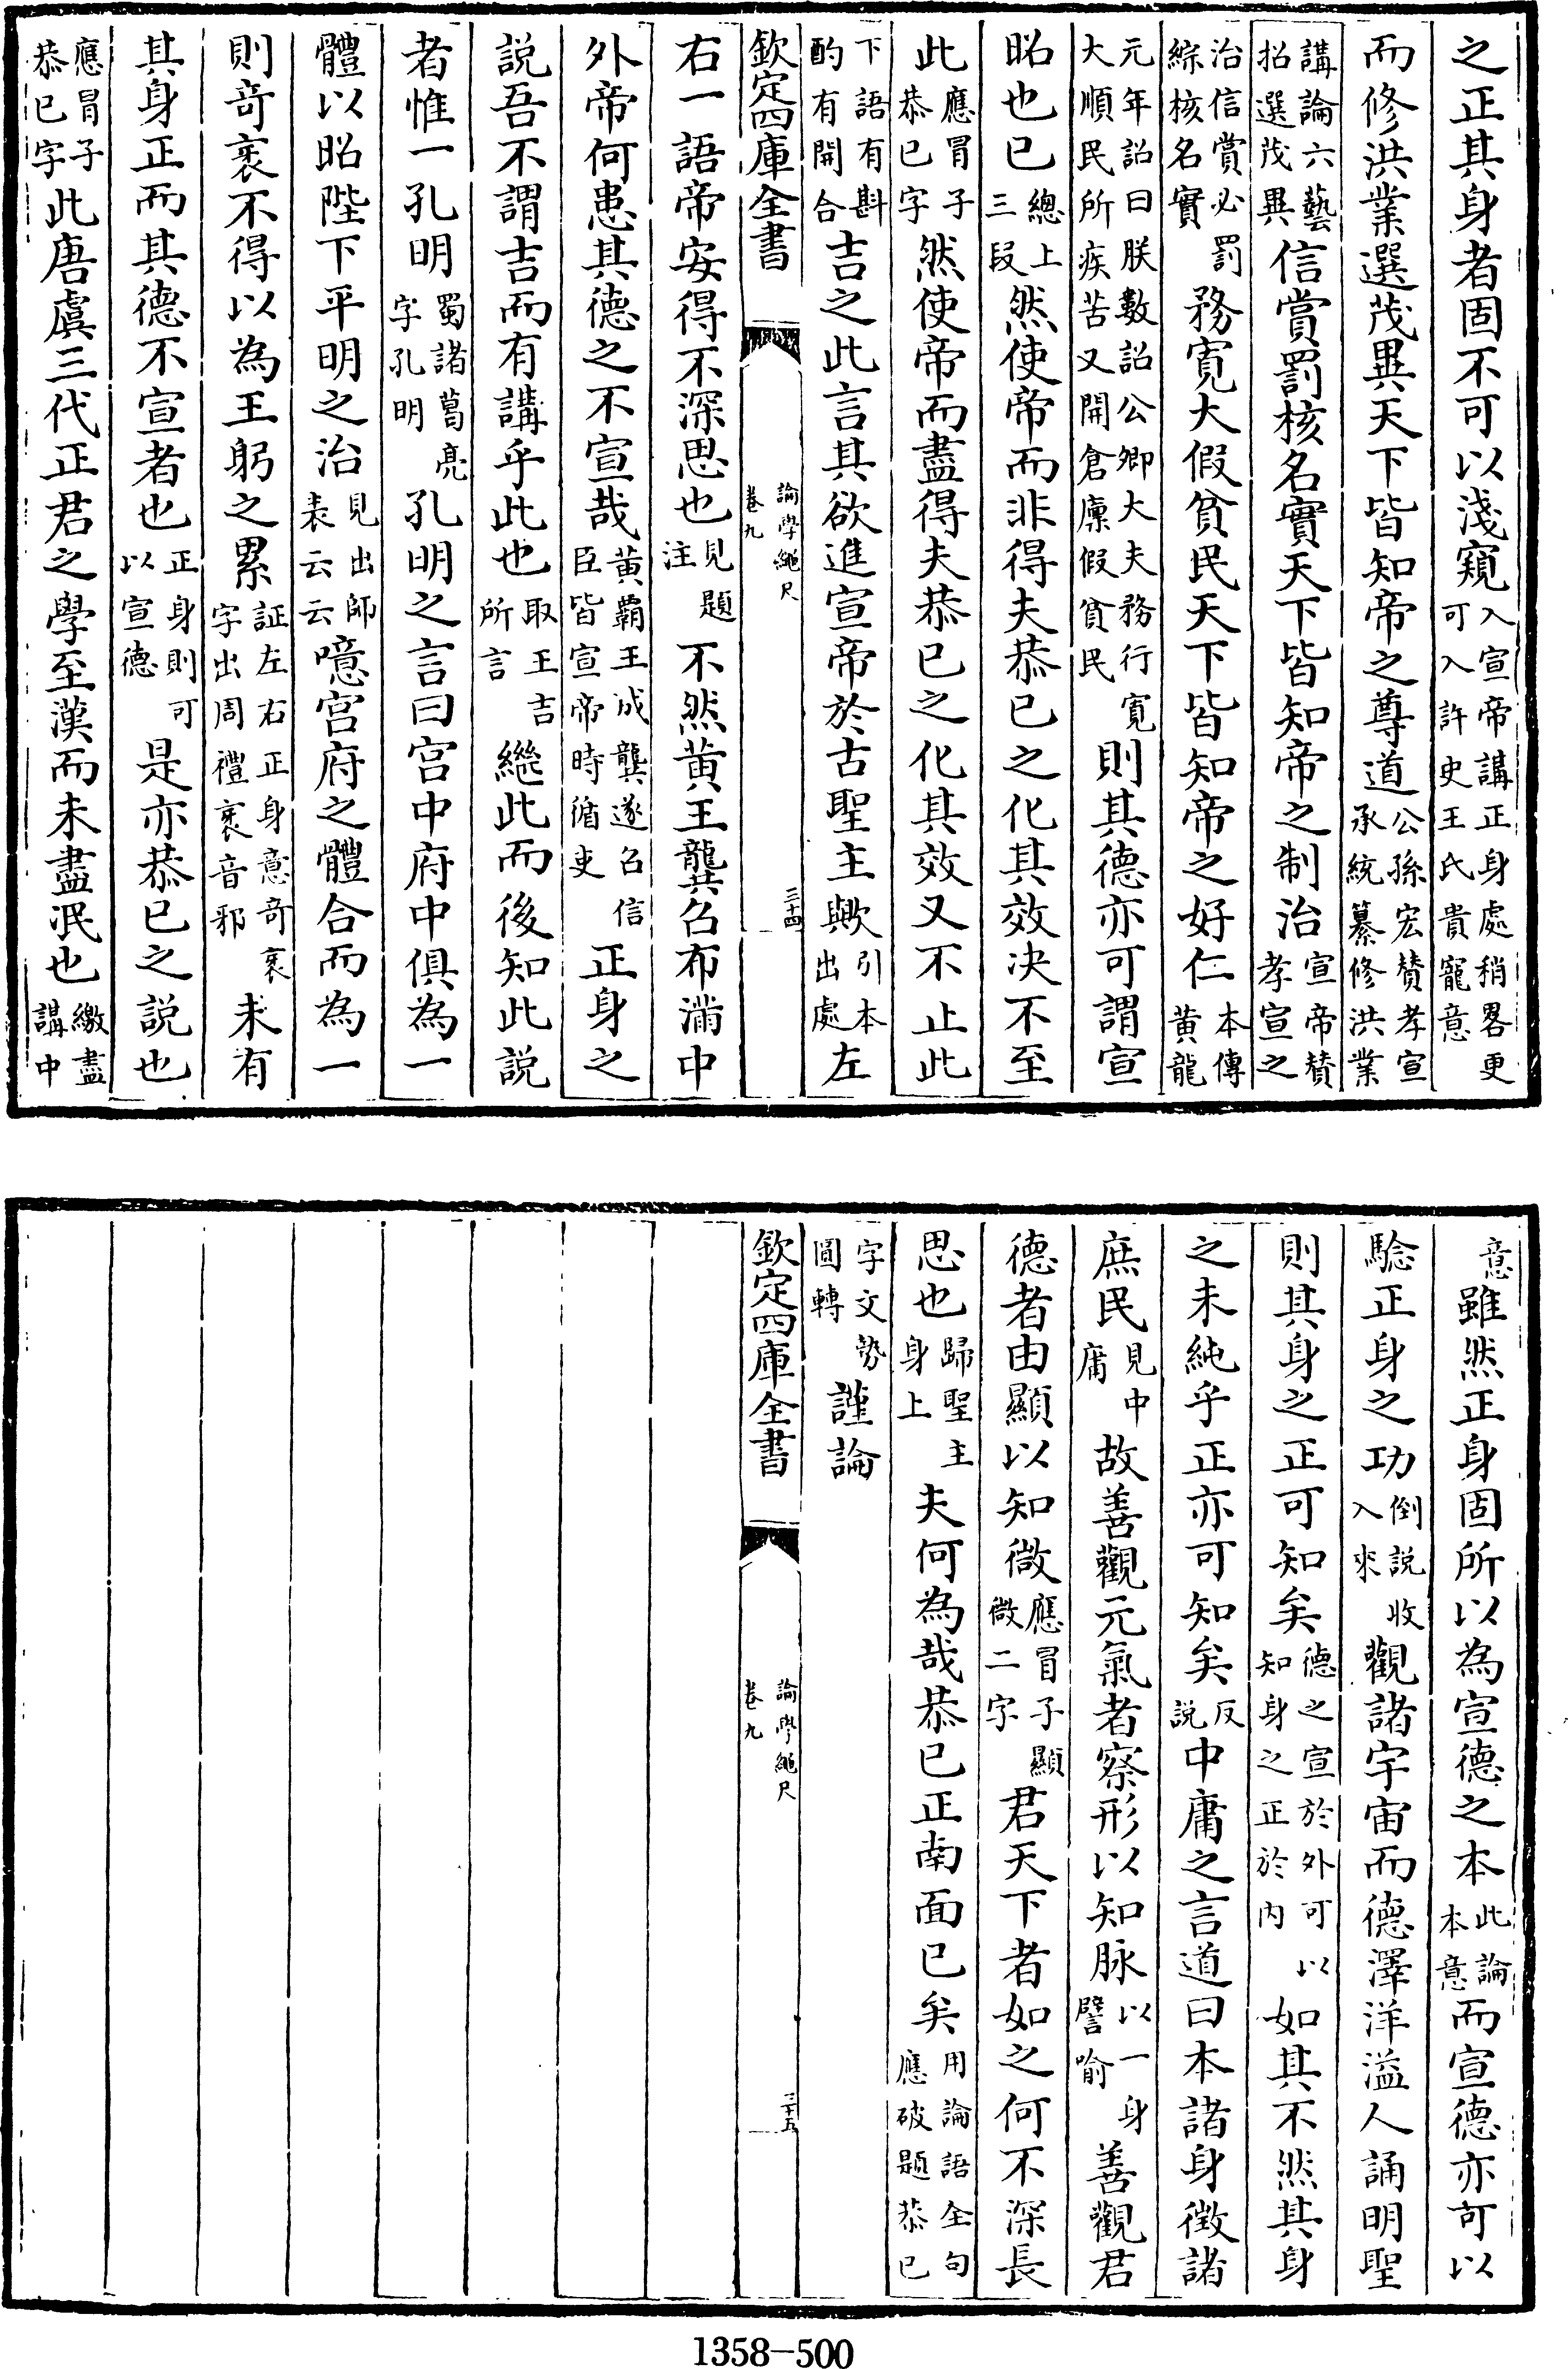 之正其身者固不可以淺窺入宣帝講正身處稍畧更可入許史王氏貴寵意
而修洪業選茂異天下皆知帝之尊道公孫宏賛孝宣承統纂修洪業
講論六藝招選茂異信賞罰核名實天下皆知帝之制治宣帝賛孝宣之
治信賞必罰綜核名實務寛大假貧民天下皆知帝之好仁本傳黄龍
元年詔曰朕數詔公卿大夫務行寛大順民所疾苦又開倉廪假貧民則其德亦可謂宣
昭也已總上三段然使帝而非得夫恭已之化其效决不至
此應冒子恭已字然使帝而盡得夫恭已之化其效又不止此
下語有斟酌有開合吉之此言其欲進宣帝於古聖主歟引本出處左
欽定四庫全書
論學繩尺
卷九
三十四
右一語帝安得不深思也見題注不然黄王龔召布滿中
外帝何患其德之不宣哉黄霸王成龔遂召信臣皆宣帝時循吏正身之
説吾不謂吉而有講乎此也取王吉所言繼此而後知此説
者惟一孔明蜀諸葛亮字孔明孔明之言曰宫中府中俱為一
體以昭陛下平明之治見出師表云云噫宫府之體合而為一
則竒衺不得以為王躬之累証左右正身意竒衺字出周禮衺音邪未有
其身正而其德不宣者也正身則可以宣德是亦恭已之説也
應冒子恭已字此唐虞三代正君之學至漢而未盡泯也繳盡講中
意雖然正身固所以為宣德之本此論本意而宣德亦可以
驗正身之功倒説收入來觀諸宇宙而德澤洋溢人誦明聖
則其身之正可知矣德之宣於外可以知身之正於内如其不然其身
之未純乎正亦可知矣反説中庸之言道曰本諸身徵諸
庶民見中庸故善觀元氣者察形以知脉以一身譬喻善觀君
德者由顯以知微應冒子顯微二字君天下者如之何不深長
思也歸聖主身上夫何為哉恭已正南面已矣用論語全句應破題恭已
字文勢圓轉謹論
欽定四庫全書
論學繩尺
卷九
三十五
1358-500